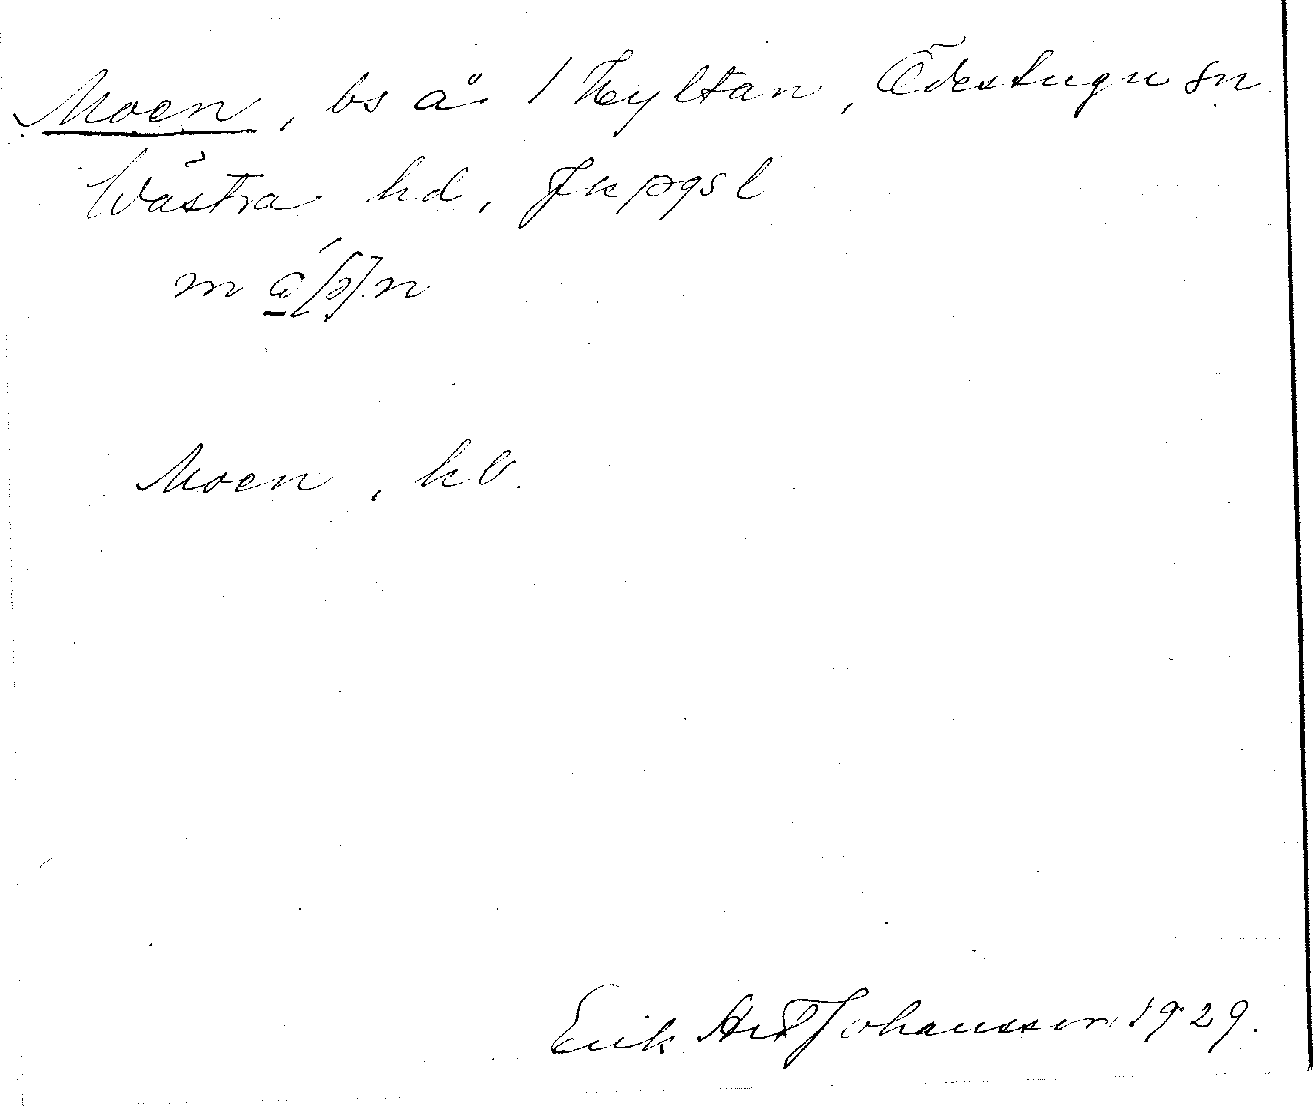 Moen, bs å 1 Hyltan, Ödestugu sn
Västra hd, Jkpgs l
Moen, kb.
Erik Art Johansson 1929.